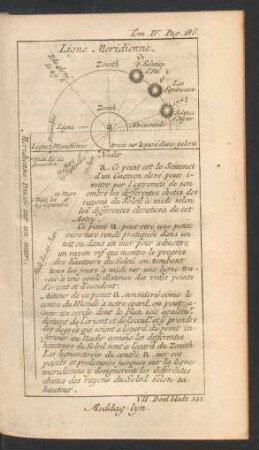 Tom. IV. Pag. 186.
Ligne Meridienne.
Zenith
Solstice d'Eté
Les Equinoxes
Solstice
Zenith
Horizontale
Ligne
a
Ligne Meridienne tracée sur le pavé d'une galerie
Nadir
Meridienne tracée sur un mur.
Midi du 22 Decembre
a. Ce point est le Sommet
d'un Gnomon elevé pour i-
miter par l'extremité de son
ombre les differentes chutes des
rayons du Soleil à midi selon
les differentes élevations de cet
Astre.
Ce point a peut etre une petite
ouverture ronde pratiquée dans un
toit ou dans un mur pour admettre
un rayon vif qui montre le progrès
des hauteurs du Soleil en tombant
tous les jours à midi sur une ligne tra-
cée à une egale distance des vrais points
d'orient et d'occident.
Autour de ce point a. consideré come le
centre du Monde à notre égard, on peut ima-
giner un cercle dont le plan soit égalem.t
distant de l'orient et de l'occid.t et y prendre
des degrés qui soient à l'égard du point in-
ferieur ou Nadir comme les differentes
hauteurs du Soleil sont à l'égard du Zenith
Les lignes tirées du centre a. sur ces
points et prolongées jusques sur la ligne
meridienne y designeront les differentes
chutes des rayons du Soleil selon sa
hauteur.
VII Deel bladz 242
Middag-lyn.